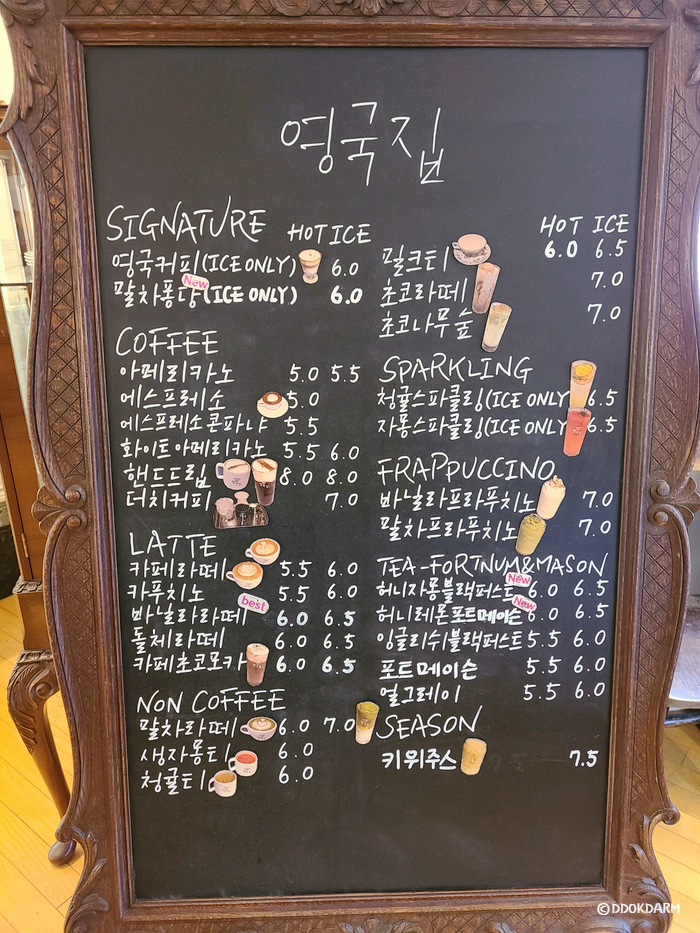 영국집
SIGNATURE HOT ICE
영국커피(ICE ONLY) 6.0
New
말차퐁당(ICE ONLY) 6.0
COFFEE
아메리카노 5.0 5.5
에스프레소 5.0
에스프레소콘파냐 5.5
화이트아메리카노 5.5 6.0
핸드드립 8.0 8.0
더치커피 7.0
LATTE
카페라떼 5.5 6.0
카푸치노 5.5 6.0
best
바닐라라떼 6.0 6.5
돌체라떼 6.0 6.5
카페초코모카 6.0 6.5
NON COFFEE
말차라떼 6.0 7.0
생자몽티 6.0
청귤티 6.0
HOT ICE
밀크티 6.0 6.5
초코라떼 7.0
초코나무숲 7.0
SPARKLING
청귤스파클링(ICE ONLY 6.5
자몽스파클링(ICE ONLY 6.5
FRAPPUCCINO
바닐라프라푸치노 7.0
말차프라푸치노 7.0
TEA-FORTNUM&MASON
New
허니자몽블랙퍼스트 6.0 6.5
New
허니레몬포트메이슨 6.0 6.5
잉글리쉬블랙퍼스트 5.5 6.0
포트메이슨 5.5 6.0
얼그레이 5.5 6.0
SEASON
키위주스 7.5
©DDOKDARM